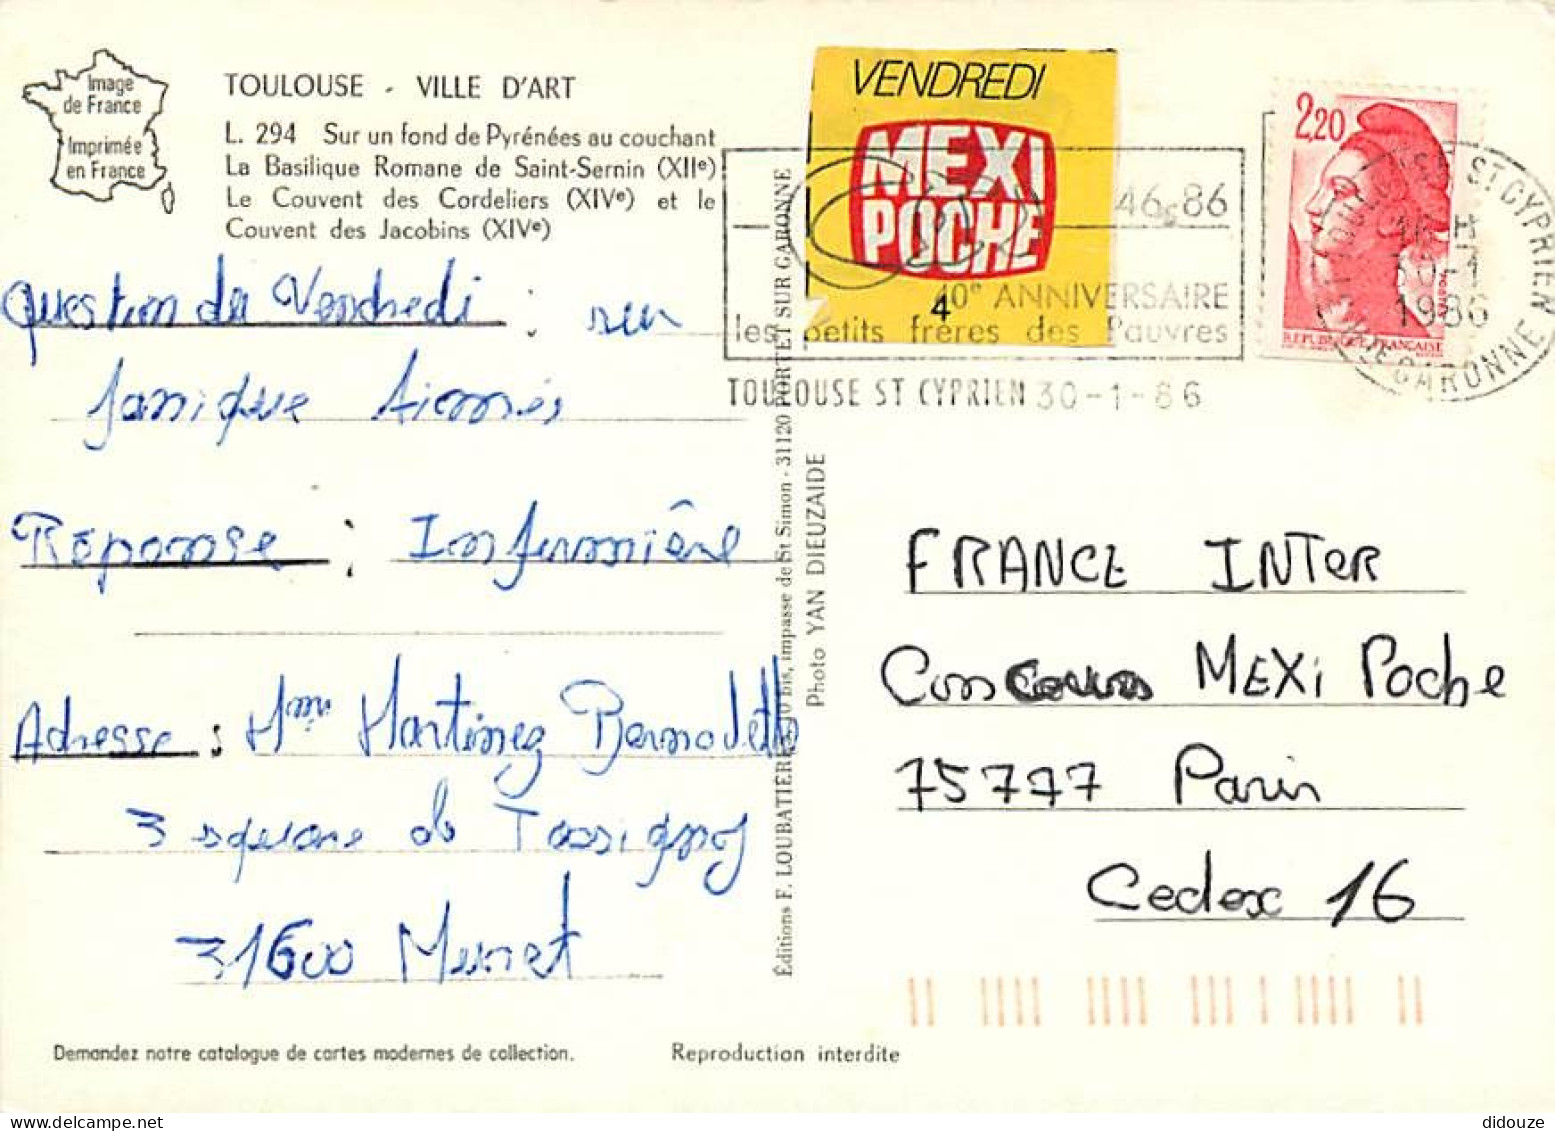 Image
de France
Imprimée
en France
TOULOUSE - VILLE D'ART
L. 294 Sur un fond de Pyrénées au couchant
La Basilique Romane de Saint-Sernin (XIIe)
Le Couvent des Cordeliers (XIVe) et le
Couvent des Jacobins (XIVe)
Question du Vendredi : sur
Janique Aimés
Réponse : Infirmière
Adresse : Martinez Bernadette
3 square de Tassigny
31600 Muret
Demandez notre catalogue de cartes modernes de collection.
Reproduction interdite
Éditions F. LOUBATIERES, 10 bis, impasse de St Simon - 31120 PORTET SUR GARONNE
Photo YAN DIEUZAIDE
VENDREDI
MEXI
POCHE
4
46 86
40e ANNIVERSAIRE
les petits frères des Pauvres
TOULOUSE ST CYPRIEN 30-1-86
2,20
RÉPUBLIQUE FRANÇAISE
ST CYPRIEN
16 H
30-1
1986
HTE GARONNE
FRANCE INTER
Concours MEXI Poche
75777 Paris
Cedex 16
didouze